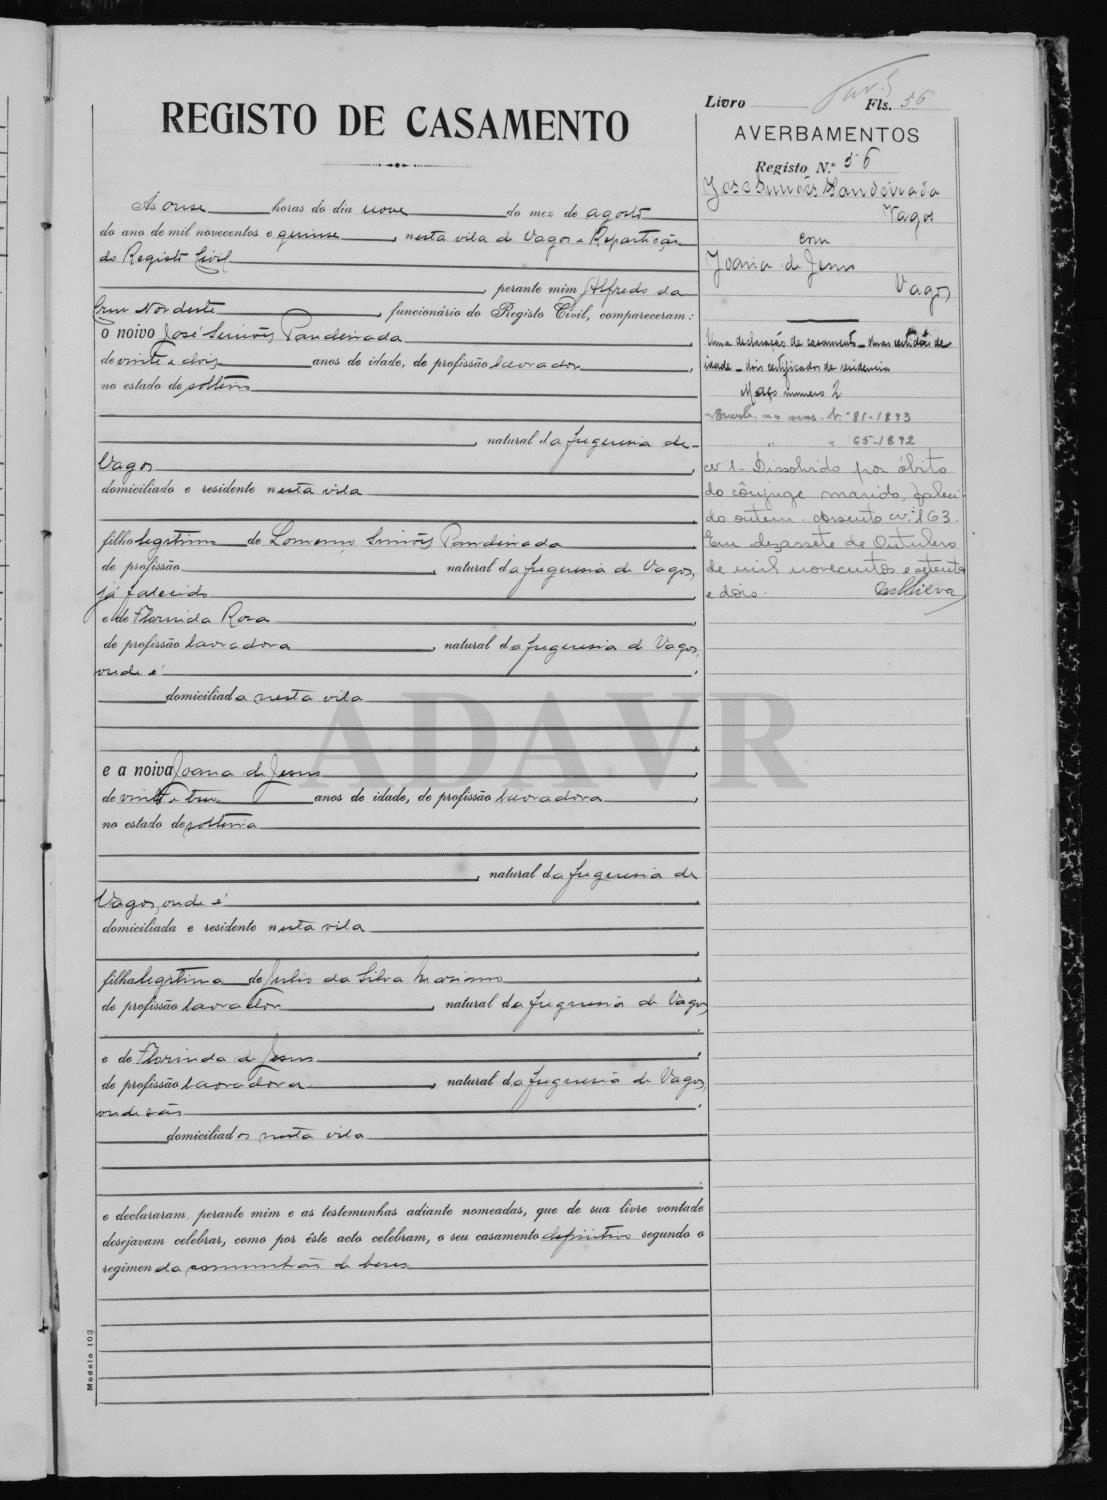 Livro Fls. 56
REGISTO DE CASAMENTO
Ás onse horas do dia nove do mez de agosto
do ano de mil novecentos e quinse, nesta vila de Vagos e Repartição
do Registo Civil
perante mim Alfredo da
Cruz Nordeste, funcionário do Registo Civil, compareceram:
o noivo José Simões Pandeirada
de vinte e dois anos de idade, de profissão lavrador,
no estado de solteiro
, natural da freguesia de
Vagos,
domiciliado e residente nesta vila
filho legitimo de Lourenço Simões Pandeirada
de profissão, natural da freguesia de Vagos,
já falecido
e de Florinda Rosa
de profissão lavradora, natural da freguesia de Vagos,
onde é
domiciliada nesta vila
e a noiva Joana de Jesus
de vinte e tres anos de idade, de profissão lavradora,
no estado de solteira
, natural da freguesia de
Vagos, onde é
domiciliada e residente nesta vila
filha legitima de Julio da Silva
de profissão lavrador, natural da freguesia de Vagos,
e de Florinda de Jesus
de profissão lavradora, natural da freguesia de Vagos,
onde são
domiciliados nesta vila
e declararam, perante mim e as testemunhas adiante nomeadas, que de sua livre vontade
desejavam celebrar, como por éste acto celebram, o seu casamento definitivo segundo o
regimen da comunhão de bens
Modelo 103
AVERBAMENTOS
Registo N.º 56
José Simões Pandeirada
Vagos
com
Joana de Jesus
Vagos
Uma declaração de casamento - duas certidões de
idade - dois certificados de residencia
Maço numero 2
Nº 81-1893
" " 65-1892
nº 1 - Dissolvido por óbito
do cônjuge marido, faleci-
do ontem. Assento nº 163.
Em dezassete de Outubro
de mil novecentos e setenta
e dois.
ADAVR